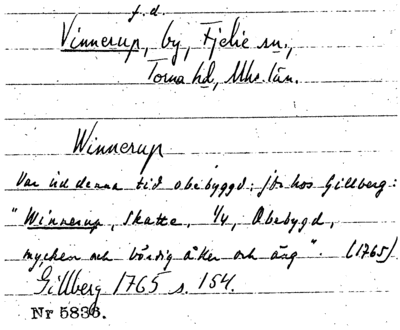 f.d.
Vinnerup, by, Fjelie sn.,
Torna hd, Mhs. län.
Winnerup
Var vid denna tid obebyggd; jfr hos Gillberg:
"Winnerup, skatte, 1/4, Obebygd,
mycken och bördig åker och äng". (1765)
Gillberg 1765 s. 154.
Nr 5836.